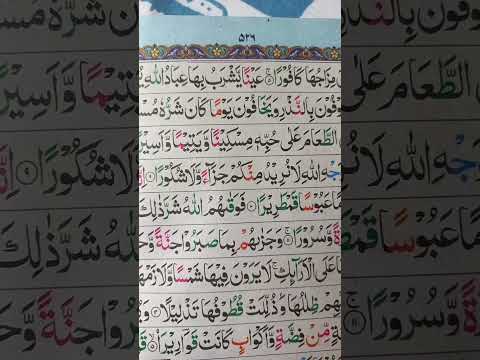 ٥٢٦
مِزَاجُهَا كَافُوْرًا ۝٥ عَيْنًا يَّشْرَبُ بِهَا عِبَادُ اللّٰهِ
وْفُوْنَ بِالنَّذْرِ وَيَخَافُوْنَ يَوْمًا كَانَ شَرُّهٗ مُسْ
الطَّعَامَ عَلٰى حُبِّهٖ مِسْكِيْنًا وَّيَتِيْمًا وَّاَسِيْرً
جْهِ اللّٰهِ لَا نُرِيْدُ مِنْكُمْ جَزَآءً وَّلَا شُكُوْرًا ۝٩ اِنَّ
مًا عَبُوْسًا قَمْطَرِيْرًا ۝١٠ فَوَقٰىهُمُ اللّٰهُ شَرَّ ذٰلِكَ
ةً وَّسُرُوْرًا ۝١١ وَجَزٰىهُمْ بِمَا صَبَرُوْا جَنَّةً وَّحَ
عَلَى الْاَرَآئِكِ لَا يَرَوْنَ فِيْهَا شَمْسًا وَّلَا زَمْهَ
هِمْ ظِلٰلُهَا وَذُلِّلَتْ قُطُوْفُهَا تَذْلِيْلًا
ةٍ مِّنْ فِضَّةٍ وَّاَكْوَابٍ كَانَتْ قَوَارِيْرَا